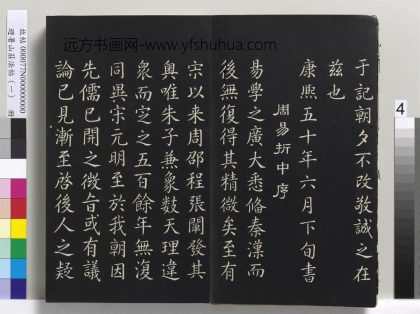 远方书画网-www.yfshuhua.com
于記朝夕不改敬誠之在
茲也
康熙五十年六月下旬書
周易折中序
易學之廣大悉備秦漢而
後無復得其精微矣至有
宋以来周邵程張闡發其
奥唯朱子兼象數天理違
衆而定之五百餘年無復
同異宋元明至於我朝因
先儒已開之微旨或有議
論已見漸至啓後人之疑
4